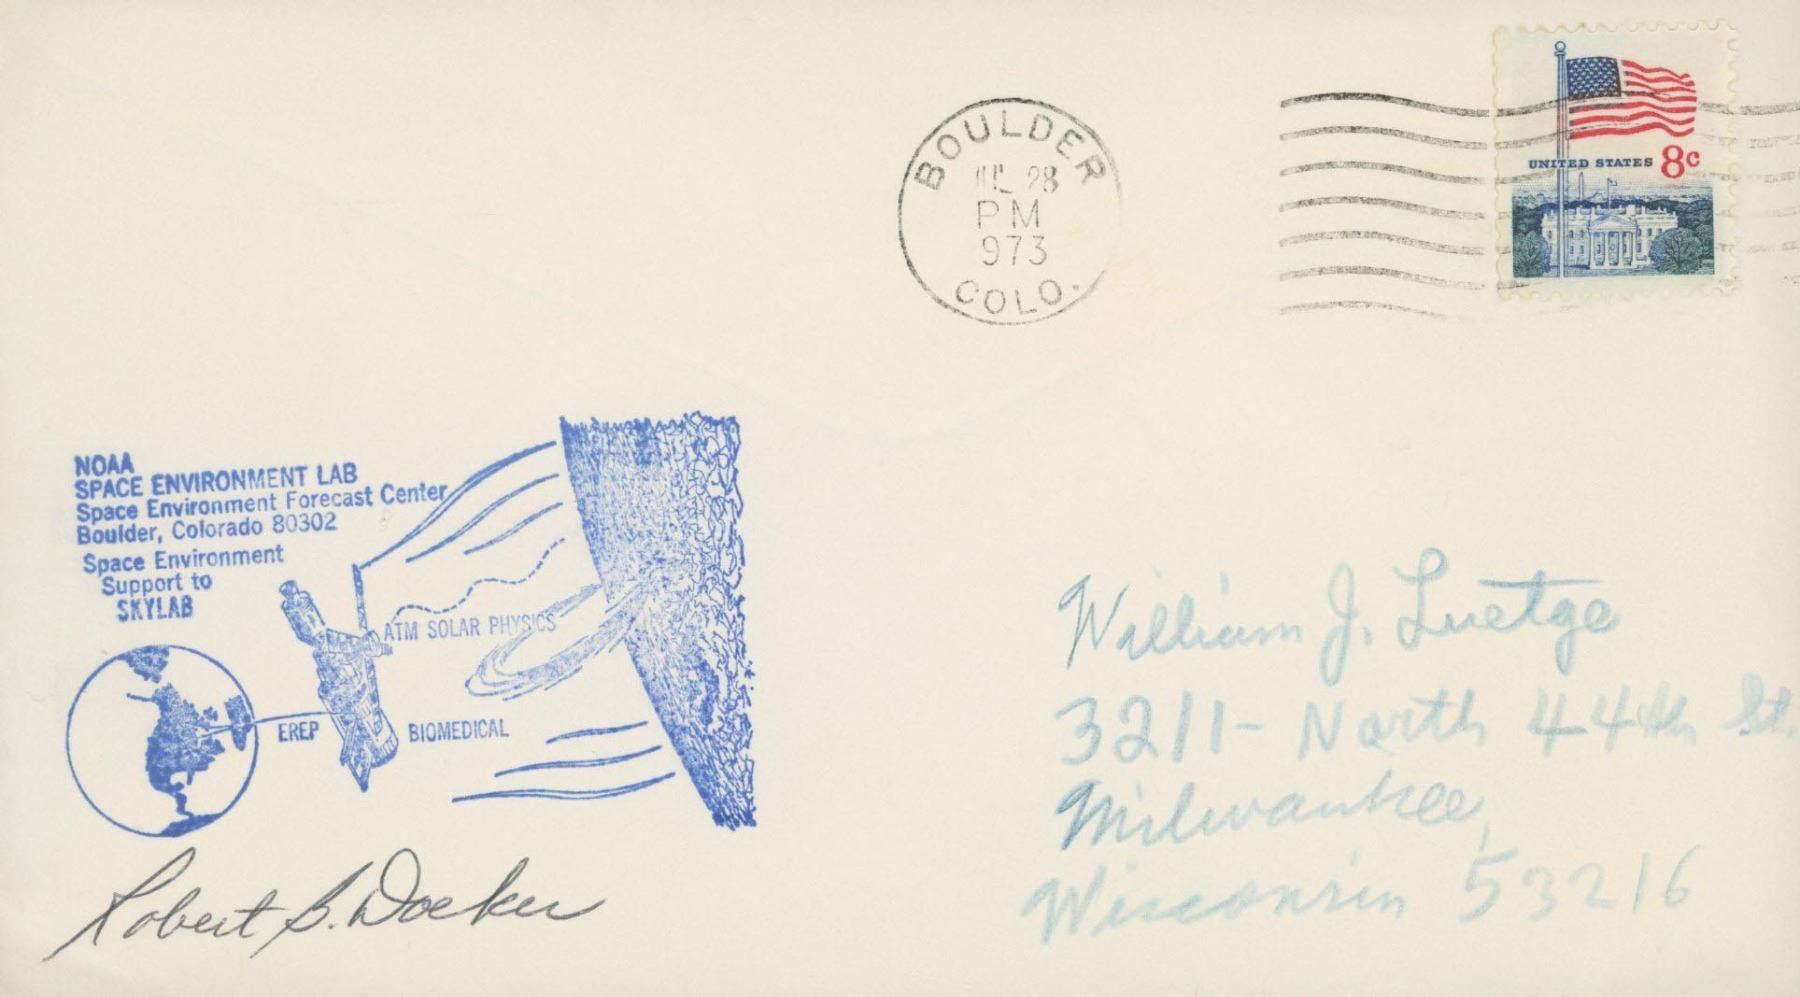 BOULDER
JUL 28
PM
973
COLO.
UNITED STATES 8c
NOAA
SPACE ENVIRONMENT LAB
Space Environment Forecast Center
Boulder, Colorado 80302
Space Environment
Support to
SKYLAB
ATM SOLAR PHYSICS
EREP
BIOMEDICAL
Robert B. Doeker
William J. Luetge
3211- North 44th St.
Milwaukee,
Wisconsin 53216